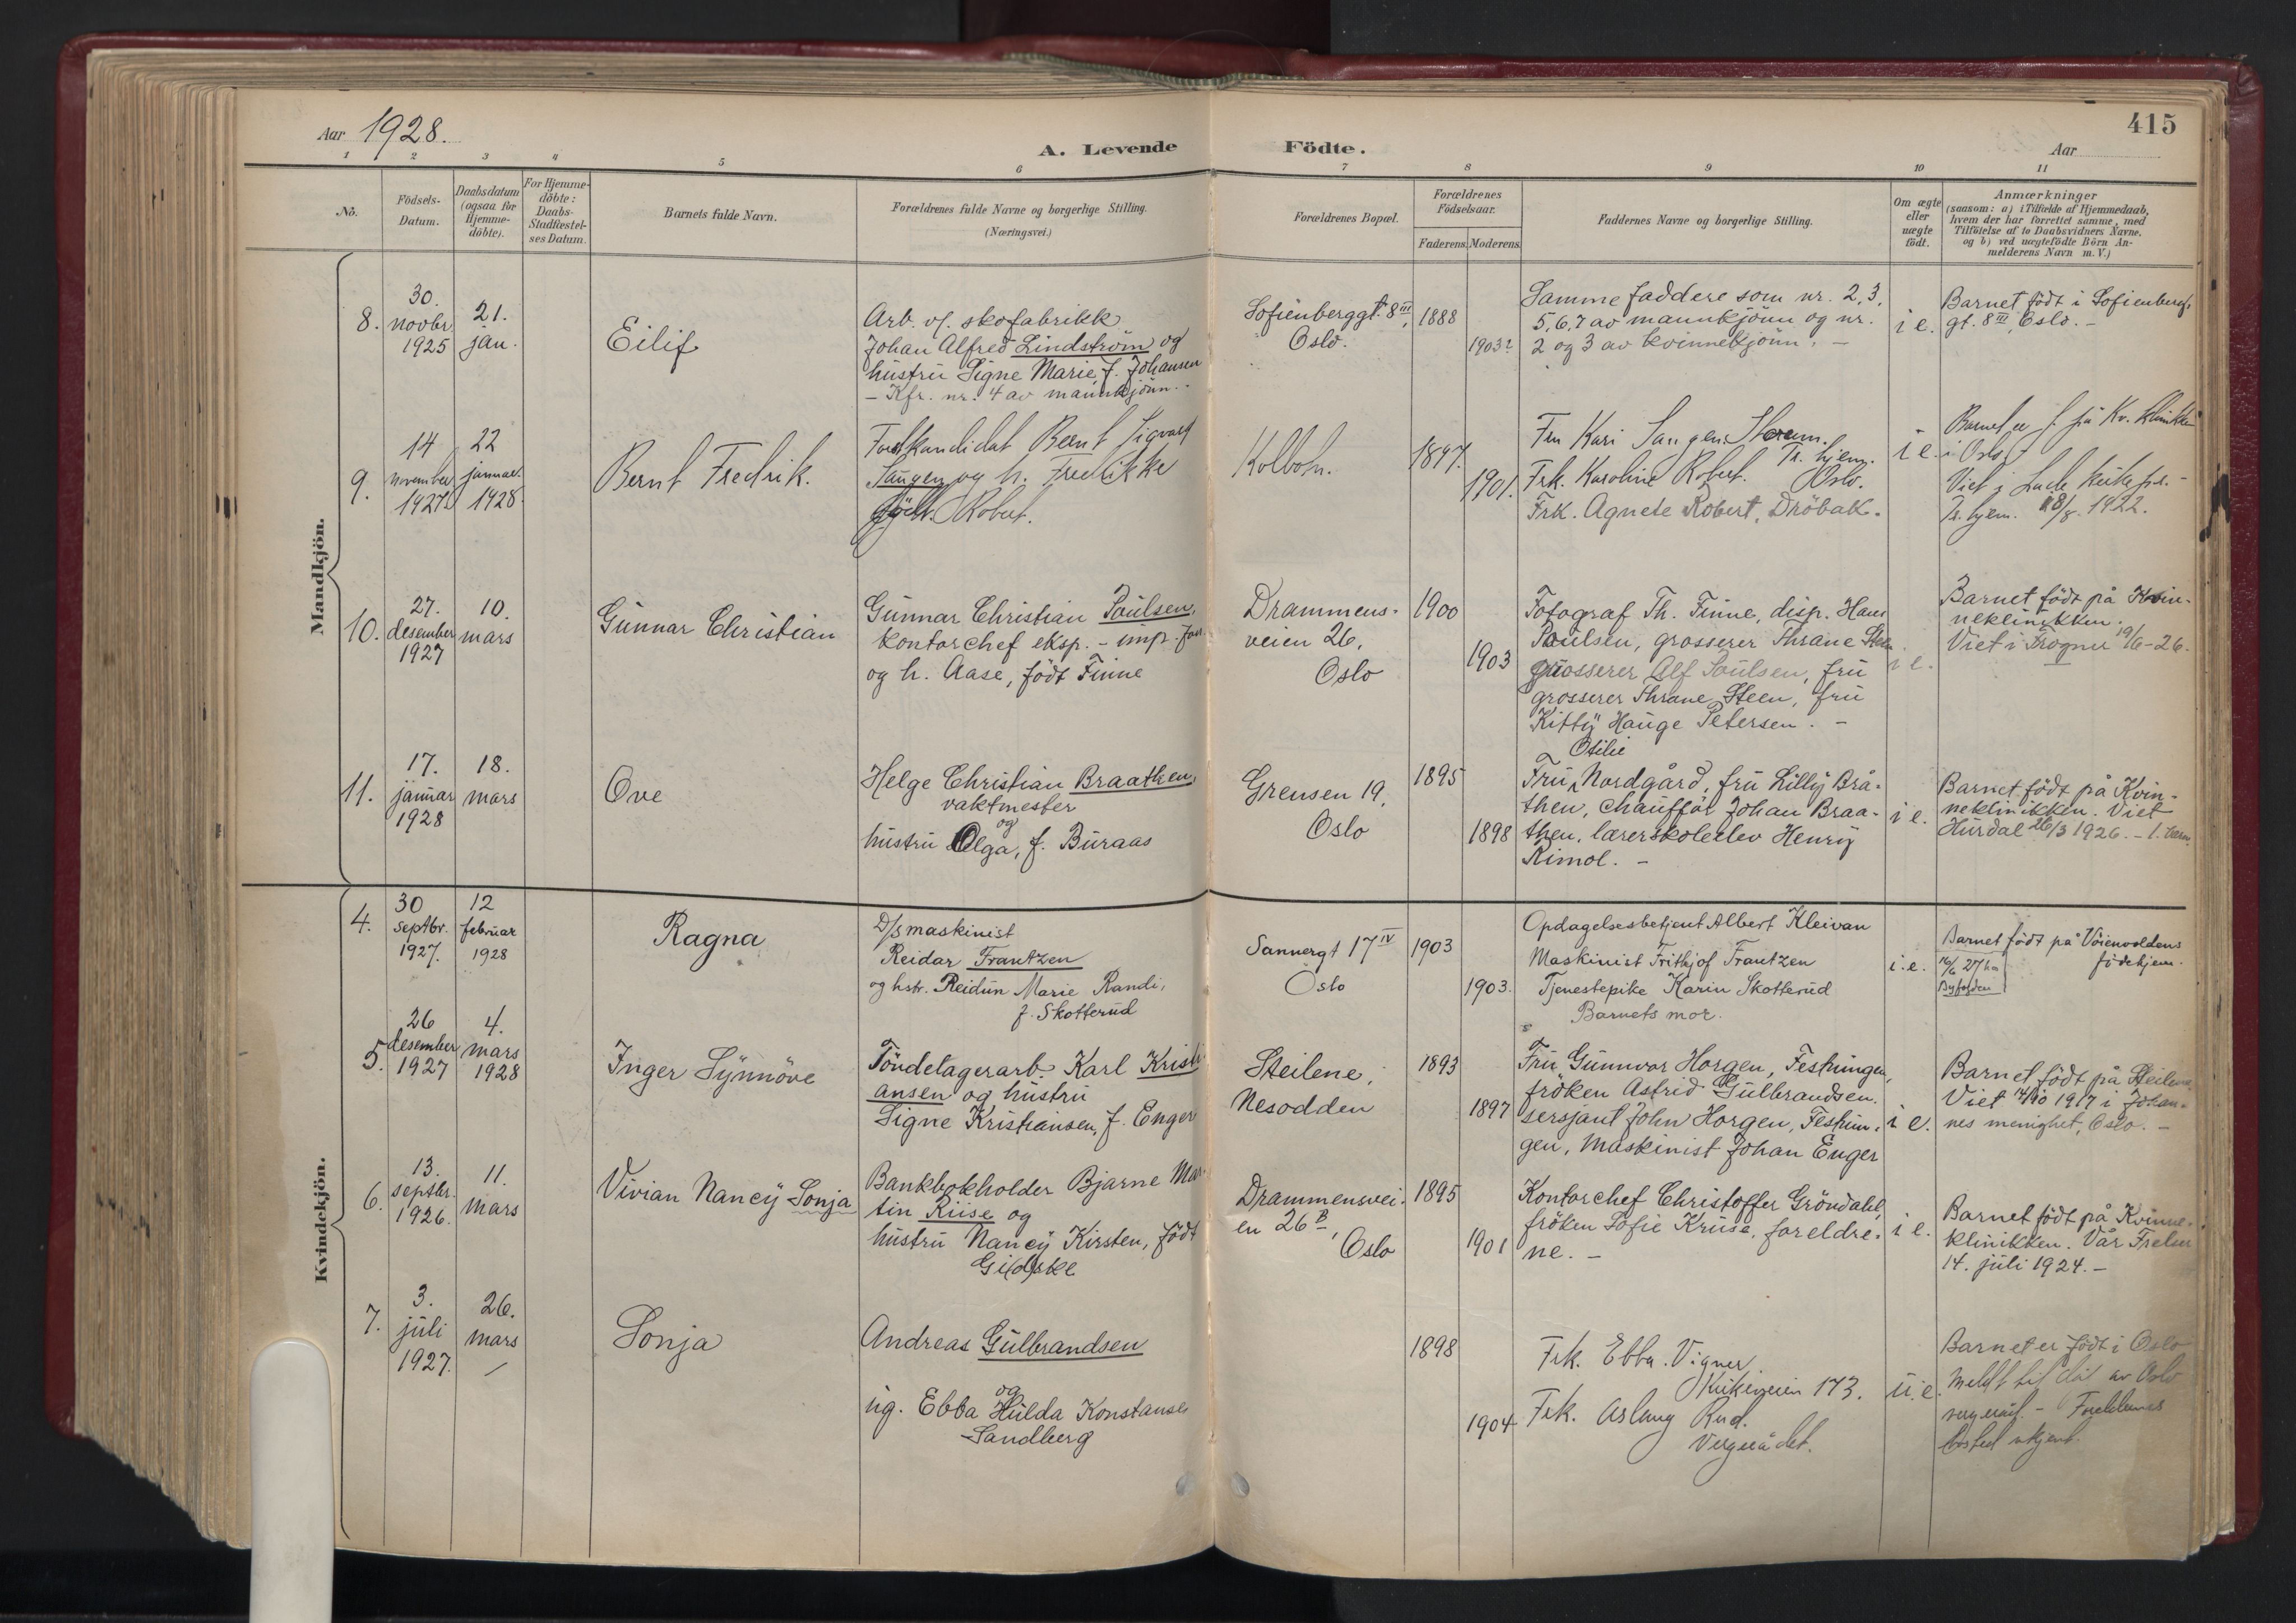 Aar 1928.
A. Levende Födte.
415
Aar
1 2 3 4 5 6 7 8 9 10 11
No.
Födsels-Datum.
Daabsdatum (ogsaa for Hjemme-döbte).
For Hjemme-döbte: Daabs-Stadfæstel-ses Datum.
Barnets fulde Navn.
Forældrenes fulde Navne og borgerlige Stilling.
(Næringsvei.)
Forældrenes Bopæl.
Forældrenes Födselsaar.
Faderens. Moderens.
Faddernes Navne og borgerlige Stilling.
Om ægte eller uægte födt.
Anmærkninger
(saasom: a) i Tilfælde af Hjemmedaab,
hvem der har forrettet samme, med
Tilföielse af to Daabsvidners Navne.
og b) ved uægtefödte Börn An-
melderens Navn m. V.)
Mandkjön.
8.
30.
novbr.
1925
21.
jan.
Eilif
Arb. v/. skofabrikk
Johan Alfred Lindström og
hustru Signe Marie, f. Johansen
- Kfr. nr. 4 av mannkjönn.
Sofienberggt. 8 III,
Oslo.
1888
1903?
Samme faddere som nr. 2, 3,
5, 6, 7 av mannkjönn og nr.
2 og 3 av kvinnekjönn. -
i e.
Barnet födt i Sofienberg-
gt. 8 III, Oslo. -
9.
14
november
1927
22
januar
1928
Bernt Fredrik.
Bernt Sigvart
Saugen og h. Fredikke
Robert.
Kolbotn.
1897.
1901.
Kari Saugen
Frk. Karoline Robert. Oslo.
Frk. Agnete Robert, Dröbak.
i e.
Barnet er f. på Kv. klinikken
i Oslo
Viet i Lade kirke
Tr.hjem. 18/8 1922.
10.
27.
desember
1927
10.
mars
Gunnar Christian
Gunnar Christian Poulsen,
kontorchef eksp. - imp.
og h. Aase, födt Finne
Drammens-
veien 26,
Oslo
1900
1903
Fotograf Th. Finne, disp. Hans
Poulsen, grosserer Thrane Steen
grosserer Alf Poulsen, fru
grosserer Thrane Steen, fru
Kitty Hauge Petersen. -
i e.
Barnet födt på Kvin-
neklinikken.
Viet i Frogner 19/6-26.
11.
17.
januar
1928
18.
mars
Ove
Helge Christian Braathen,
vaktmester
og
hustru Olga, f. Buraas
Grensen 19,
Oslo
1895
1898
Otilie
Fru Nordgård, fru Lilly Brå-
then, chauffør Johan Braa-
then, lærerskoleelev Henry
Rimol. -
i e.
Barnet födt på Kvin-
neklinikken. Viet
Hurdal 26/3 1926. - 1. barn.
Kvindekjön.
4.
30
septbr.
1927.
12
februar
1928
Ragna
D/s maskinist
Reidar Frantzen
og hstr. Reidun Marie Randi,
f. Skotterud
Sannergt 17 IV
Oslo
1903
1903.
Opdagelsesbetjent Albert Kleivan
Maskinist Frithjof Frantzen
Tjenestepike Karin Skotterud
Barnets mor.
i. e.
Barnet födt på Vöienvoldens
födehjem.
16/6 27
Byfogden
5.
26
desember
1927
4.
mars
1928
Inger Synnöve
Töndelagerarb. Karl Kristi-
ansen og hustru
Signe Kristiansen, f. Enger
Steilene,
Nesodden
1893
1897
Fru Gunnvor Horgen, Festningen,
fröken Astrid Gulbrandsen.
sersjant John Horgen, Festnin-
gen, maskinist Johan Enger
i e.
Barnet födt på Steilene
Viet 14/10 1917 i Johan-
nes menighet, Oslo. -
6.
13.
septbr.
1926.
11.
mars
Vivian Nancy Sonja
Bankbokholder Bjarne Mar-
tin Riise og
hustru Nancy Kirsten, födt
Gidske
Drammensvei-
en 26 B,
Oslo
1895
1901
Kontorchef Christoffer Gröndahl,
fröken Sofie Kruse, foreldre-
ne. -
i e.
Barnet födt på Kvinne-
klinikken. Vår Frelser
14. juli 1924. -
7.
3.
juli
1927.
26.
mars
Sonja
Andreas Gulbrandsen
og
ug. Ebba Hulda Konstanse
Sandberg
1898
1904
Frk. Ebba Vigner
Kirkeveien 173.
Frk. Aslaug Rud.
Vergerådet.
u. e.
Barnet er födt i Oslo
Meldt til dåp av Oslo
vergeråd. - Foreldrenes
bosted ukjent.